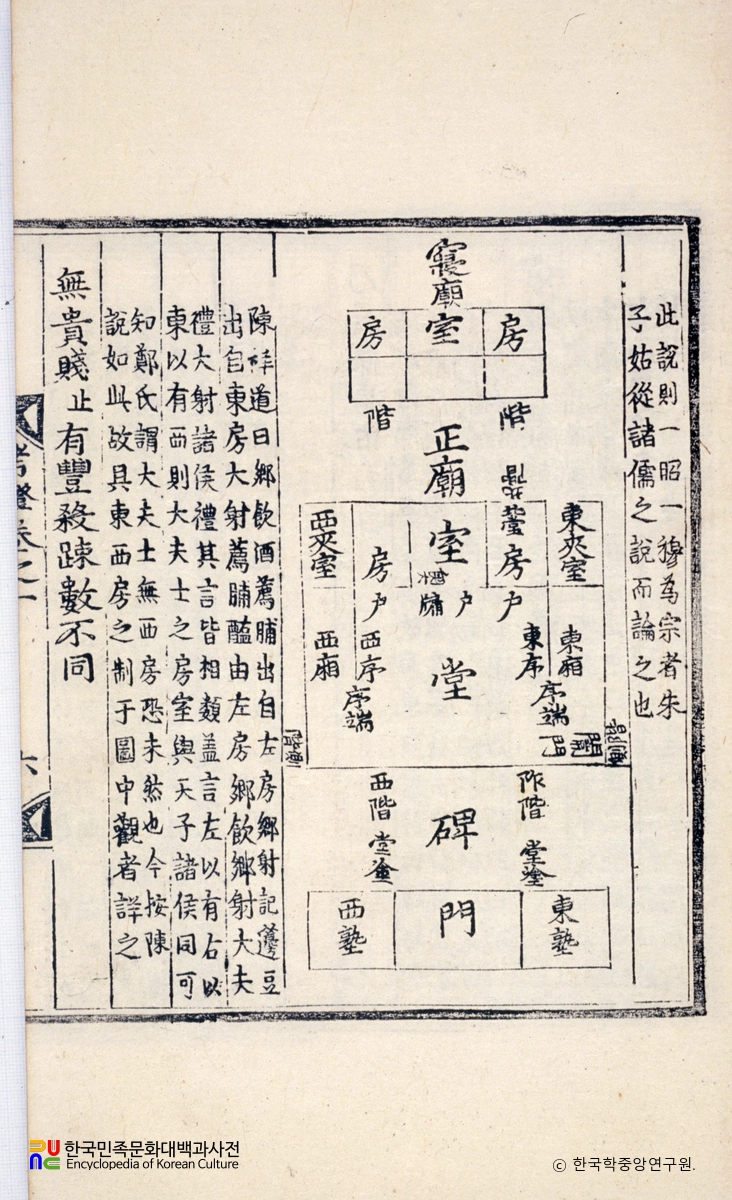 此說則一昭一穆為宗者朱
子姑從諸儒之說而論之也
寢廟
房
室
房
階
階
正廟
北堂
房
室
房
東夾室
西夾室
牖
戶
戶
戶
東廂
東序
西序
西廂
堂
序端
序端
闈門
側階
側階
阼階
西階
堂塗
堂塗
碑
東塾
門
西塾
陳祥道曰鄉飲酒薦脯出自左房鄉射記籩豆
出自東房大射薦脯醢由左房鄉飲鄉射大夫
禮大射諸侯禮其言皆相類蓋言左以有右以
東以有西則大夫士之房室與天子諸侯同可
知鄭氏謂大夫士無西房恐未然也今按陳
說如此故具東西房之制于圖中觀者詳之
無貴賤止有豐殺疎數不同
考證卷之一
六
한국민족문화대백과사전
Encyclopedia of Korean Culture
© 한국학중앙연구원.